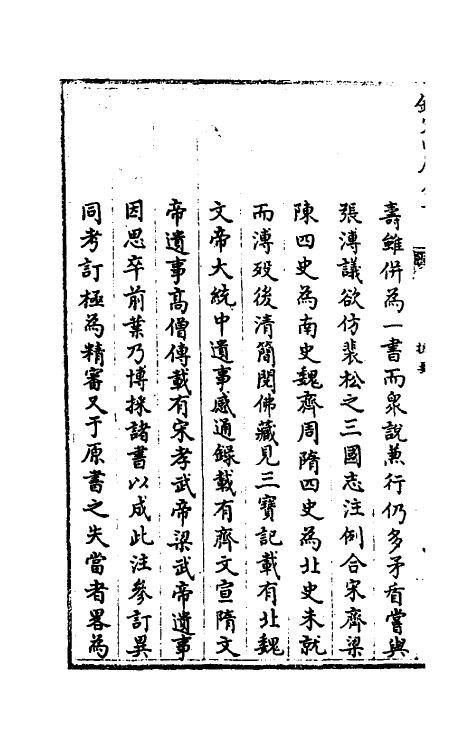 壽雖併為一書而衆說兼行仍多矛盾嘗與
張溥議欲仿裴松之三國志注例合宋齊梁
陳四史為南史魏齊周隋四史為北史未就
而溥歿後清簡閱佛藏見三寶記載有北魏
文帝大統中遺事感通錄載有齊文宣隋文
帝遺事高僧傳載有宋孝武帝梁武帝遺事
因思卒前業乃博採諸書以成此注參訂異
同考訂極為精審又于原書之失當者畧為